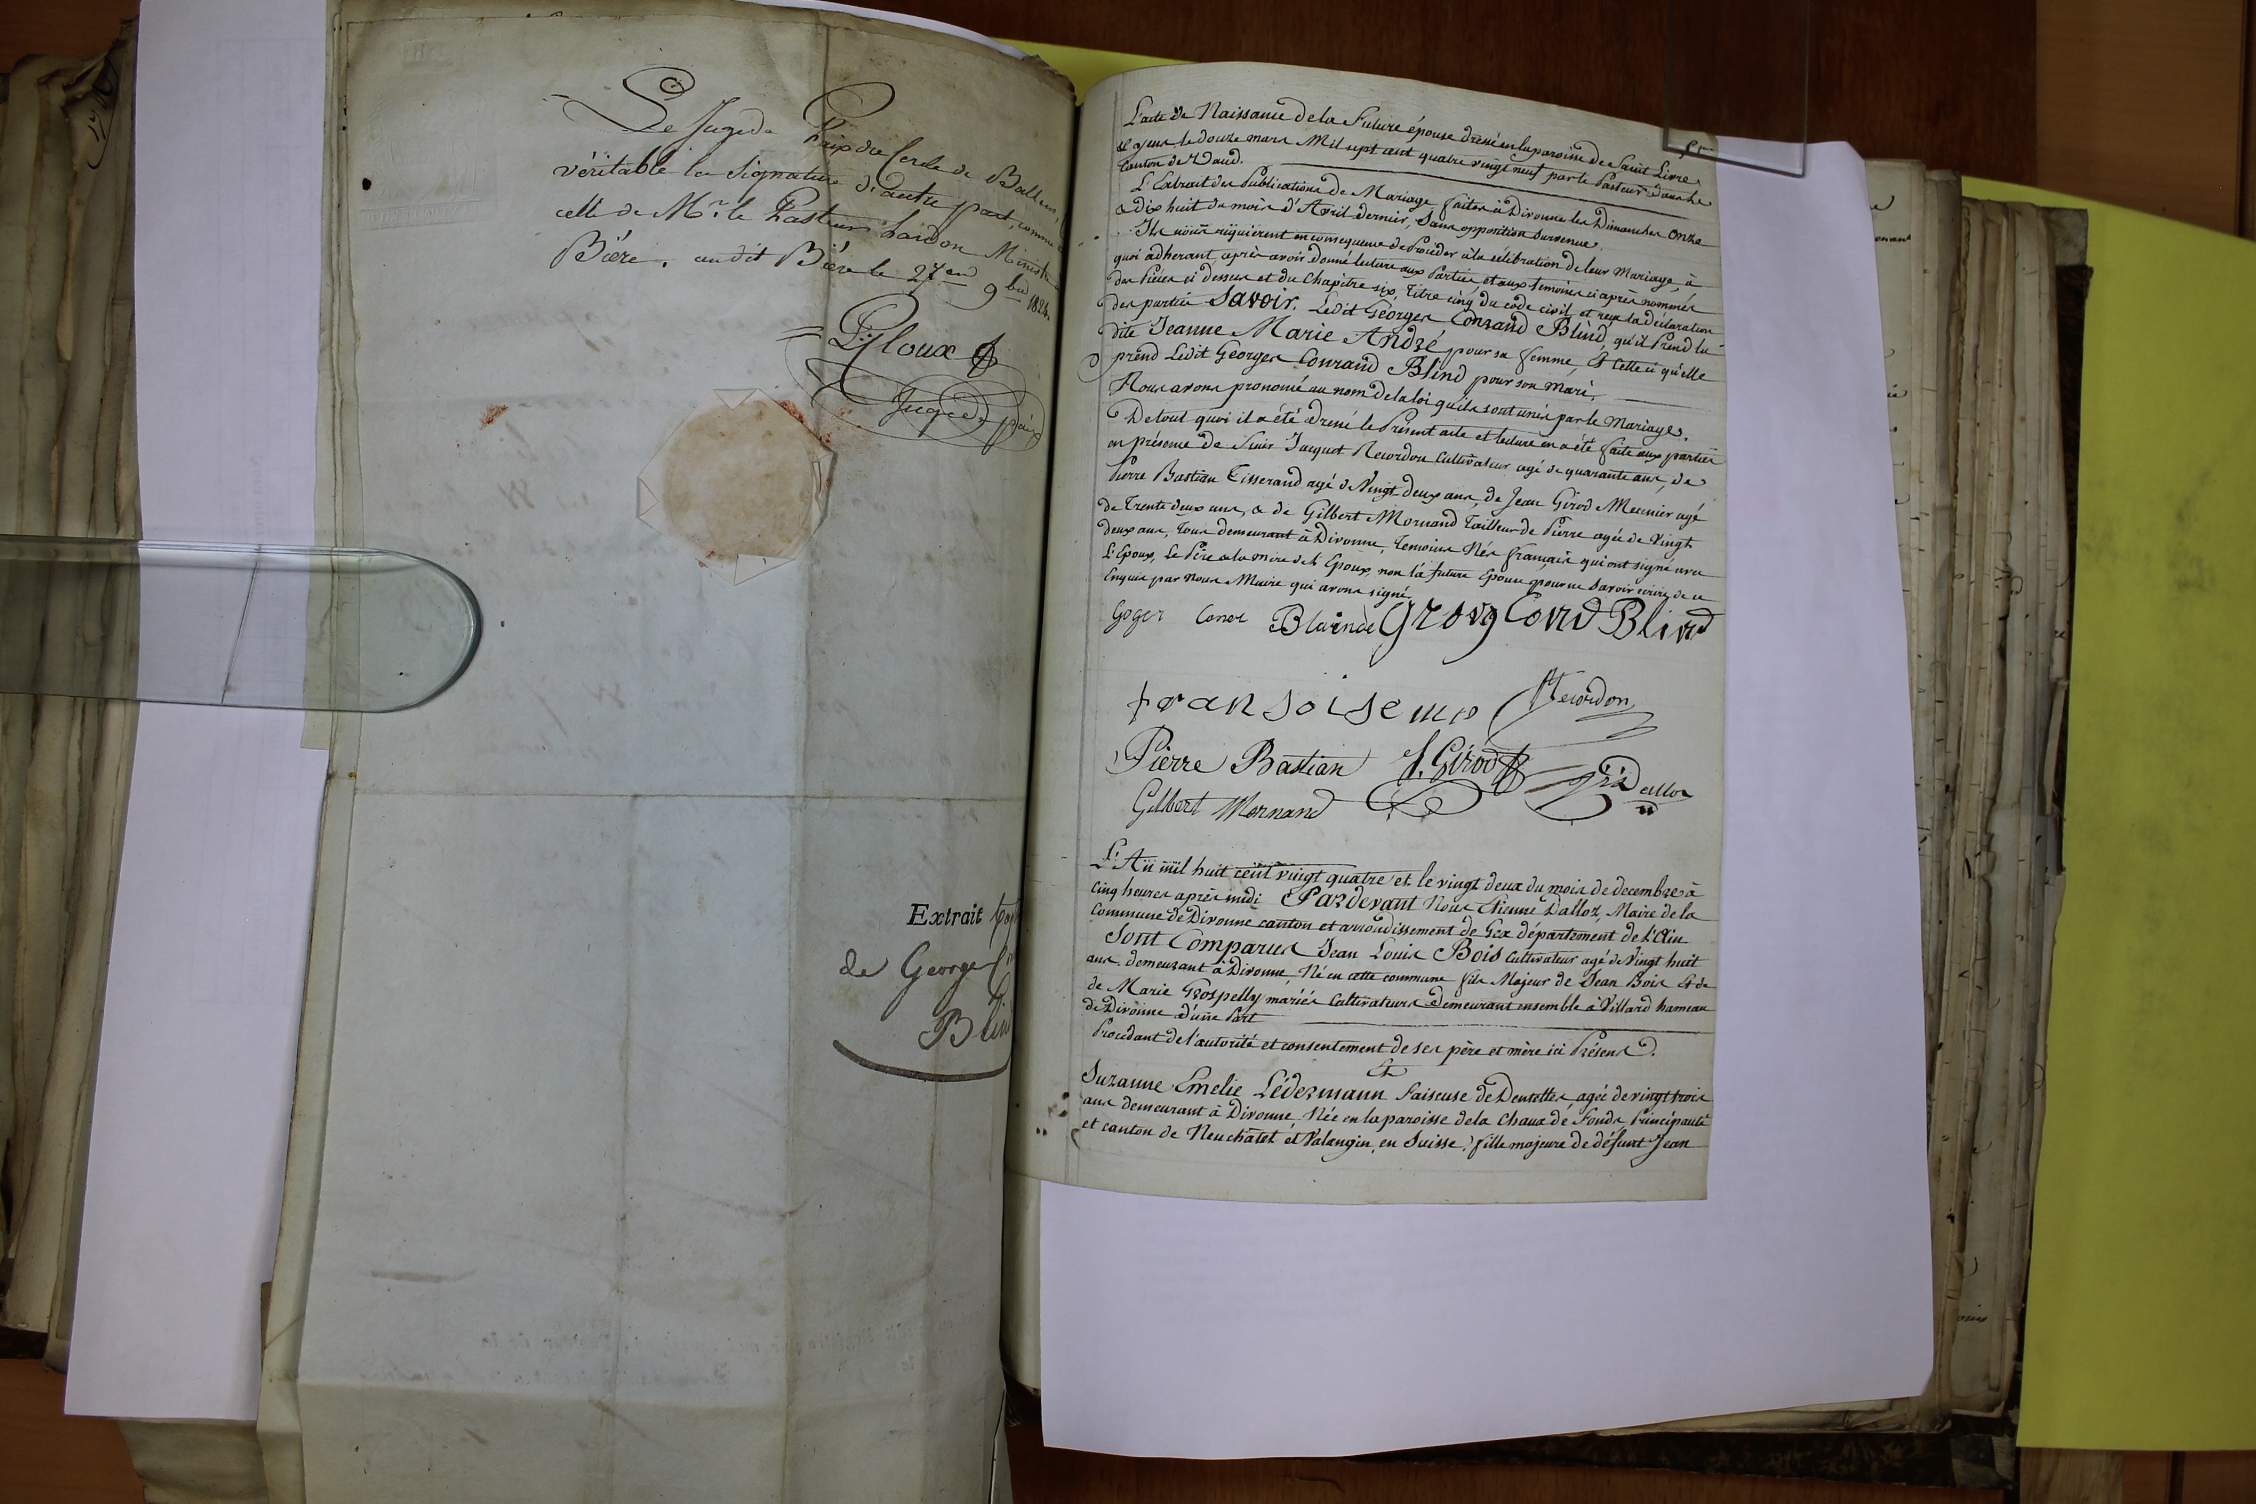 Le Juge de Paix du Cercle de Ballens,
véritable la signature d'autre part, comme
celle de Mr. le Pasteur Lardon Ministre
Bière. audit Bière le 27en 9bre 1824.
Pyloux
Juge de paix
Extrait
de George
Blind
L'acte de Naissance de la Future épouse dressé en la paroisse de Saint Livre
& yens le douze mars Mil sept cent quatre vingt neuf par le Pasteur
Canton de Vaud.
L'Extrait des Publications de Mariage faites à Divonne les Dimanches onze
& dix huit du mois d'Avril dernier, sans opposition survenue.
Ils nous réquierent en consequence de Procéder à la célébration de leur Mariage, à
quoi adherant, après avoir donné lecture aux Parties, et aux temoins ci après nommés
des Pièces ci dessus et du Chapitre six, Titre cinq du code civil et reçu la Déclaration
des parties Savoir. Ledit Georges Conrand Blind, qu'il Prend la
dite Jeanne Marie André pour sa femme, & Celle ci qu'elle
prend Ledit Georges Conrand Blind pour son mari.
Nous avons prononcé au nom de la loi qu'ils sont unis par le Mariage.
De tout quoi il a été dressé le Présent acte et lecture en a été faite aux parties
en présence de Sieur Jaques Recordon Cultivateur agé de quarante ans, de
Pierre Bastian Tisserand agé de Vingt deux ans, de Jean Girod Meunier agé
de Trente deux ans, & de Gilbert Mornand Tailleur de Pierre agée de Vingt
deux ans, Tous demeurant à Divonne, Temoins Nés français qui ont signé avec
L'Epoux, Le Père & la mère de l'Epoux, non la future Epouse pour ne Savoir écrire de ce
Enquis par Nous Maire qui avons signé
Goger Conet Blainde Grorg Conrd Blind
fransoise Recordon
Pierre Bastian J. Girod Dalloz
Gilbert Mornand
L'An mil huit cent vingt quatre et le vingt deux du mois de decembre à
cinq heures après midi Pardevant Nous Etienne Dalloz, Maire de la
Commune de Divonne canton et arrondissement de Gex département de L'Ain
Sont Comparus Jean Louis Bois Cultivateur agé de Vingt huit
ans demeurant à Divonne, Né en cette commune fils Majeur de Jean Bois & de
de Marie Grospelly mariés Cultivateurs demeurant ensemble à Villard hameau
de Divonne d'une Part
Procédant de l'autorité et consentement de ses père et mère ici Présens.
Et
Suzanne Emelie Lédermann Faiseuse de Dentelles, agée de vingt trois
ans demeurant à Divonne Née en la paroisse de la Chaux de Fonds, Principauté
et canton de Neuchâtel et Valangin, en Suisse, fille majeure de défunt Jean